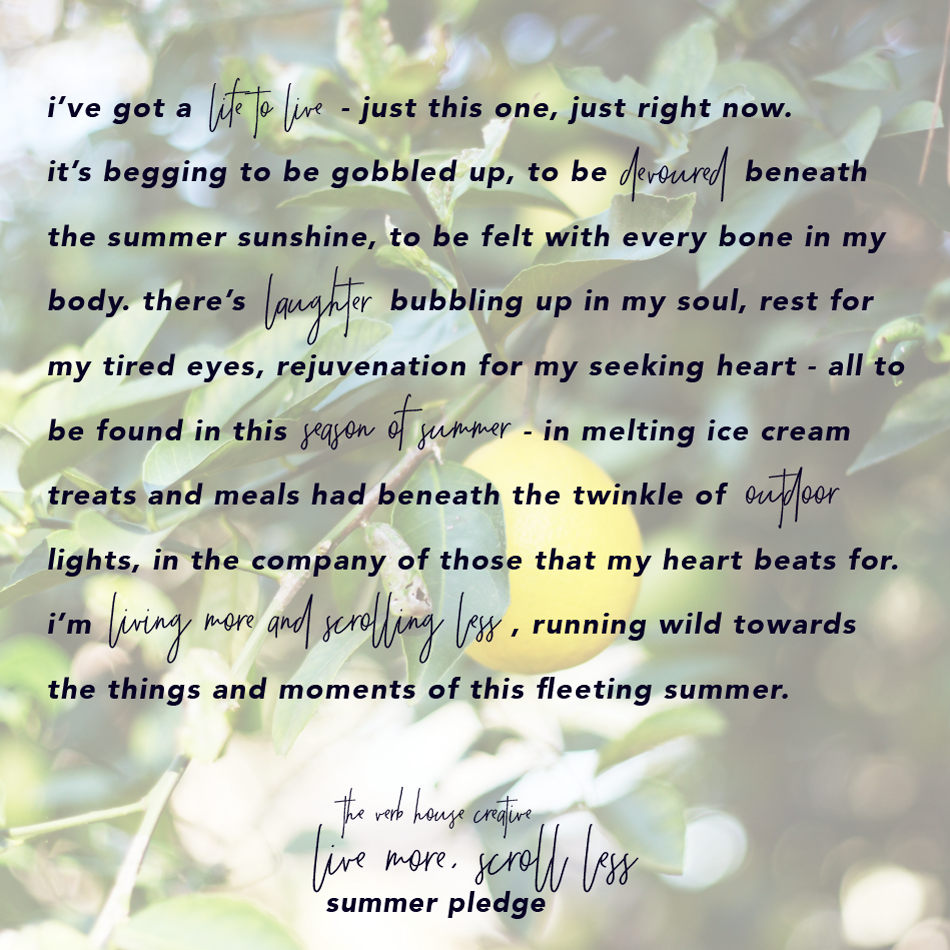 i’ve got a life to live - just this one, just right now.
it’s begging to be gobbled up, to be devoured beneath
the summer sunshine, to be felt with every bone in my
body. there’s laughter bubbling up in my soul, rest for
my tired eyes, rejuvenation for my seeking heart - all to
be found in this season of summer - in melting ice cream
treats and meals had beneath the twinkle of outdoor
lights, in the company of those that my heart beats for.
i’m living more and scrolling less , running wild towards
the things and moments of this fleeting summer.
the verb house creative
live more. scroll less
summer pledge